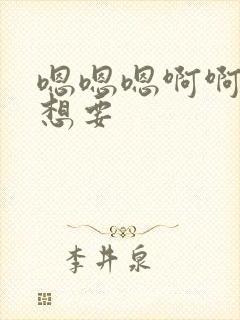 嗯嗯嗯啊啊
想要
李井泉